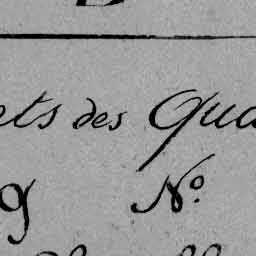 ets des Qua
9 N.º